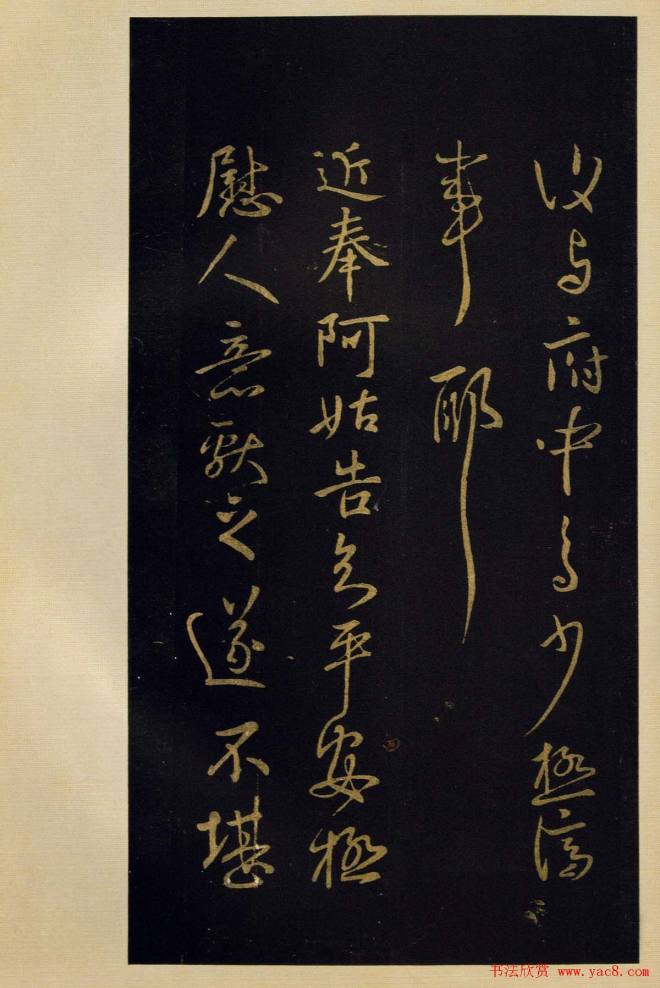 与府中多少極濟
事耶
近奉阿姑告知平安極
慰人意獻之遂不堪
书法欣赏 www.yac8.com